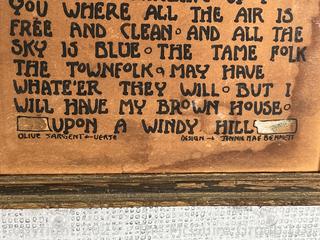 YOU WHERE ALL THE AIR IS
FREE AND CLEAN· AND ALL THE
SKY IS BLUE· THE TAME FOLK
THE TOWNFOLK, MAY HAVE
WHATE'ER THEY WILL· BUT I
WILL HAVE MY BROWN HOUSE·
UPON A WINDY HILL
OLIVE SARGENT ← VERSE DESIGN → JENNIE MAE BENNETT